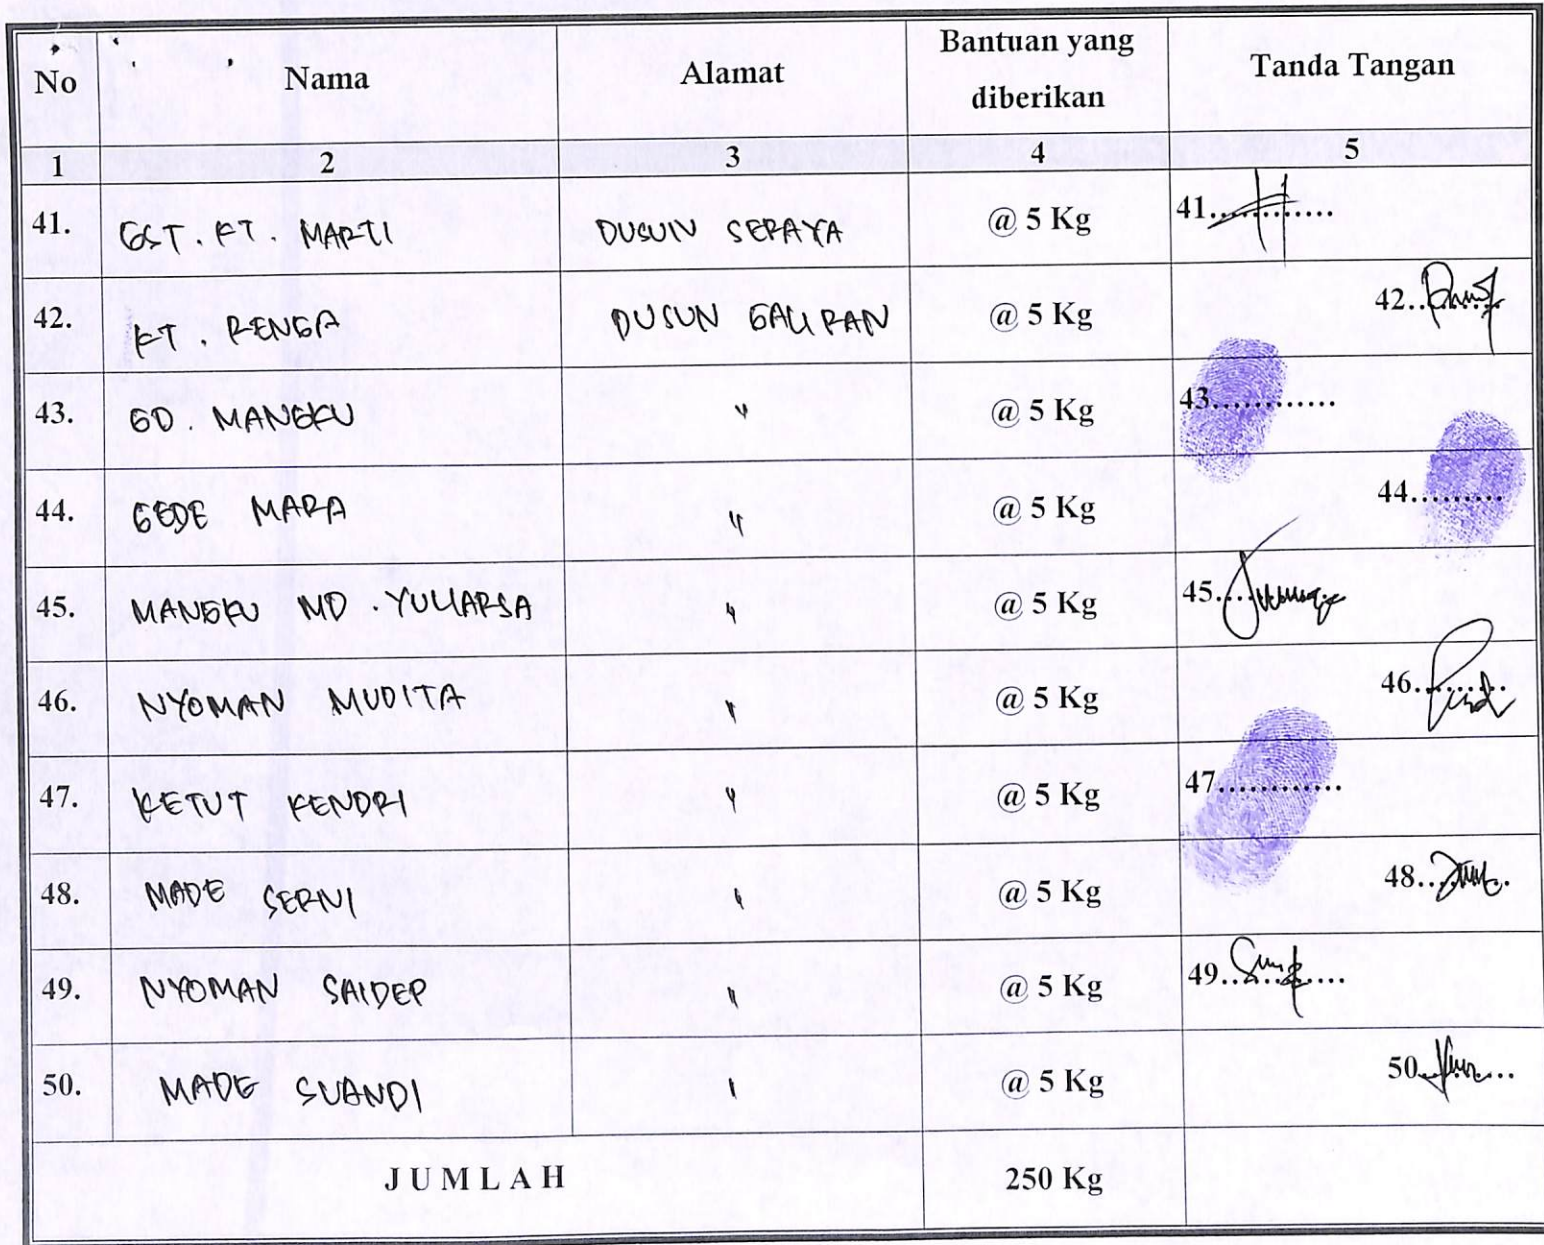 No Nama Alamat Bantuan yang diberikan Tanda Tangan
1 2 3 4 5
41. GST. KT. MARTI DUSUN SERAYA @ 5 Kg 41............
42. KT. RENGA DUSUN GALIRAN @ 5 Kg 42..
43. GD. MANGKU " @ 5 Kg 43............
44. GEDE MARA " @ 5 Kg 44.........
45. MANGKU MD. YULIARSA " @ 5 Kg 45....
46. NYOMAN MUDITA " @ 5 Kg 46.........
47. KETUT KENDRI " @ 5 Kg 47............
48. MADE SERNI " @ 5 Kg 48...
49. NYOMAN SAIDEP " @ 5 Kg 49............
50. MADE SUANDI " @ 5 Kg 50......
JUMLAH 250 Kg